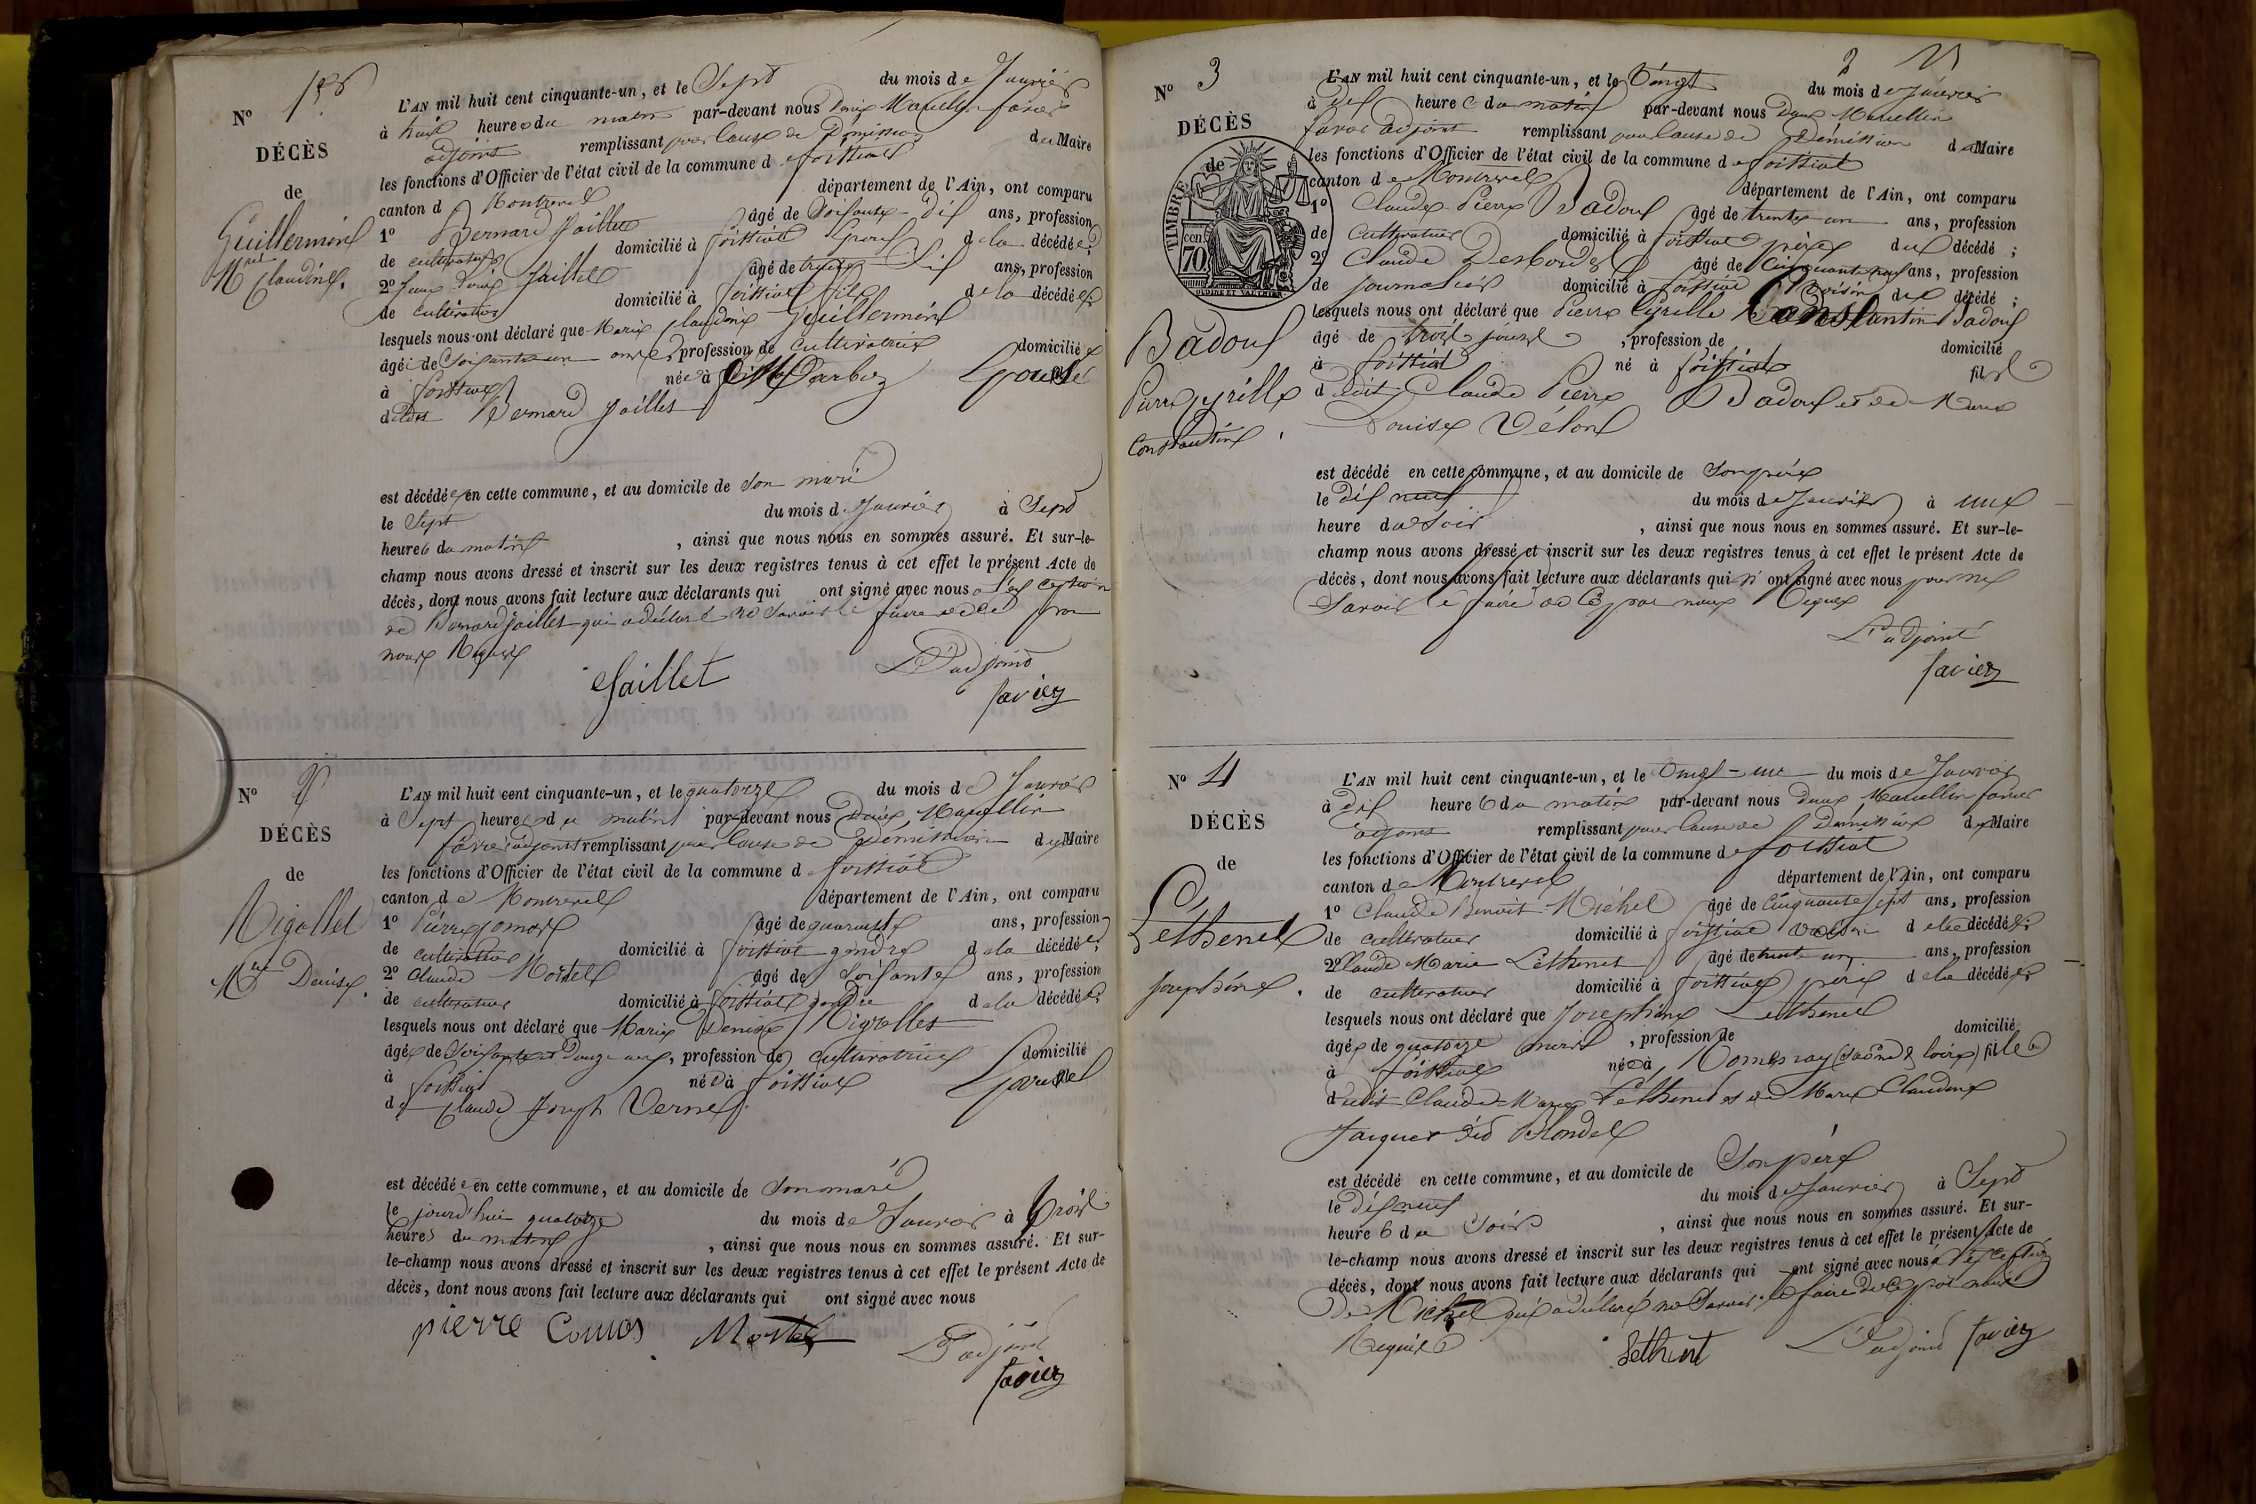 N° 1er
DÉCÈS
de
Guillermin
Mie Claudine.
L'AN mil huit cent cinquante-un, et le Sept du mois de Janvier
à huit heures du matin par-devant nous Denis Marcellin favier
adjoint remplissant pour Cause de Démission du Maire
les fonctions d'Officier de l'état civil de la commune de foissiat
canton d Montrevel département de l'Ain, ont comparu
1° Bernard Jaillet âgé de Soisante-dix ans, profession
de cultivateur domicilié à foissiat Epoux de la décédée;
2° Jaillet âgé de ans, profession
de cultivateur domicilié à foissiat fils de la décédée;
lesquels nous ont déclaré que Marie Claudine Guillermin
âgée de Soisante un ans, profession de Cultivatrice domiciliée
à foissiat née à St Epouse
dudit Bernard Jaillet
est décédée en cette commune, et au domicile de Son mari
le Sept du mois de Janvier à Sept
heures du matin , ainsi que nous nous en sommes assuré. Et sur-le-
champ nous avons dressé et inscrit sur les deux registres tenus à cet effet le présent Acte de
décès, dont nous avons fait lecture aux déclarants qui ont signé avec nous a l'exception
de Bernard Jaillet qui a déclaré ne Savoir le faire de ce par
nous Requis
Jaillet L'adjoint
favier
N° 2
DÉCÈS
de
Rigollet
Mie Denise.
L'AN mil huit cent cinquante-un, et le quatorze du mois de Janvier
à Sept heures du matin par-devant nous Denis Marcellin
favier adjoint remplissant pour Cause de Démission du Maire
les fonctions d'Officier de l'état civil de la commune d foissiat
canton de Montrevel département de l'Ain, ont comparu
1° Pierre âgé de quarante ans, profession
de cultivateur domicilié à foissiat gendre de la décédée;
2° Claude Mortel âgé de Soisante ans, profession
de cultivateur domicilié à foissiat gendre de la décédée;
lesquels nous ont déclaré que Marie Denise Rigollet
âgée de Soisante et Douze ans, profession de cultivatrice domicilié
à foissiat née à foissiat Epouse
de Claude Joseph Vernet
est décédée en cette commune, et au domicile de Son mari
le jourd'hui quatorze du mois de Janvier à trois
heures du matin , ainsi que nous nous en sommes assuré. Et sur-
le-champ nous avons dressé et inscrit sur les deux registres tenus à cet effet le présent Acte de
décès, dont nous avons fait lecture aux déclarants qui ont signé avec nous
pierre Comas Mortel
L'adjoint
favier
2
N° 3
DÉCÈS
de
TIMBRE
cen
70
Badoux
Pierre Cyrille
Constantin.
L'AN mil huit cent cinquante-un, et le Vingt du mois de Janvier
à dix heures du matin par-devant nous Denis Marcellin
favier adjoint remplissant pour Cause de Démission du Maire
les fonctions d'Officier de l'état civil de la commune de foissiat
canton de Montrevel département de l'Ain, ont comparu
1° Claude Pierre Badoux âgé de trente un ans, profession
de cultivateur domicilié à foissiat père du décédé;
2° Claude Desbordes âgé de Cinquante neuf ans, profession
de journalier domicilié à foissiat Voisin du décédé;
lesquels nous ont déclaré que Pierre Cyrille Constantin Badoux
âgé de trois jours, profession de domicilié
à foissiat né à foissiat fils
dudit Claude Pierre Badoux et de Marie
Louise Vélon
est décédé en cette commune, et au domicile de Son père
le dix neuf du mois de Janvier à une
heure du Soir , ainsi que nous nous en sommes assuré. Et sur-le-
champ nous avons dressé et inscrit sur les deux registres tenus à cet effet le présent Acte de
décès, dont nous avons fait lecture aux déclarants qui n'ont signé avec nous pour ne
Savoir le faire de ce par nous Requis
L'adjoint
favier
N° 4
DÉCÈS
de
Lethenet
Josephine.
L'AN mil huit cent cinquante-un, et le Vingt-un du mois de Janvier
à dix heures du matin par-devant nous Denis Marcellin favier
adjoint remplissant pour Cause de Démission du Maire
les fonctions d'Officier de l'état civil de la commune de foissiat
canton de Montrevel département de l'Ain, ont comparu
1° Claude Benoit Michel âgé de Cinquante Sept ans, profession
de cultivateur domicilié à foissiat voisin de la décédée;
2° Claude Marie Lethenet âgé de trente un ans, profession
de cultivateur domicilié à foissiat père de la décédée;
lesquels nous ont déclaré que Josephine Lethenet
âgée de quatorze mois, profession de domicilié
à foissiat née à Romenay (Saône & loire) fille
dudit Claude Marie Lethenet et de Marie Claudine
Jacquet dit Blondel
est décédé en cette commune, et au domicile de Son père
le dix neuf du mois de Janvier à Sept
heures du Soir , ainsi que nous nous en sommes assuré. Et sur-
le-champ nous avons dressé et inscrit sur les deux registres tenus à cet effet le présent Acte de
décès, dont nous avons fait lecture aux déclarants qui ont signé avec nous a l'exception
de Michel qui a déclaré ne Savoir le faire de ce par nous
Requis
Lethenet L'adjoint favier